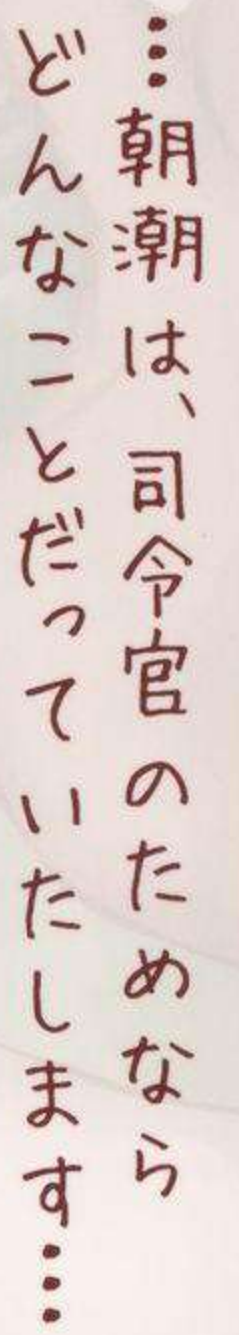 …朝潮は、司令官のためなら
どんなことだっていたします…